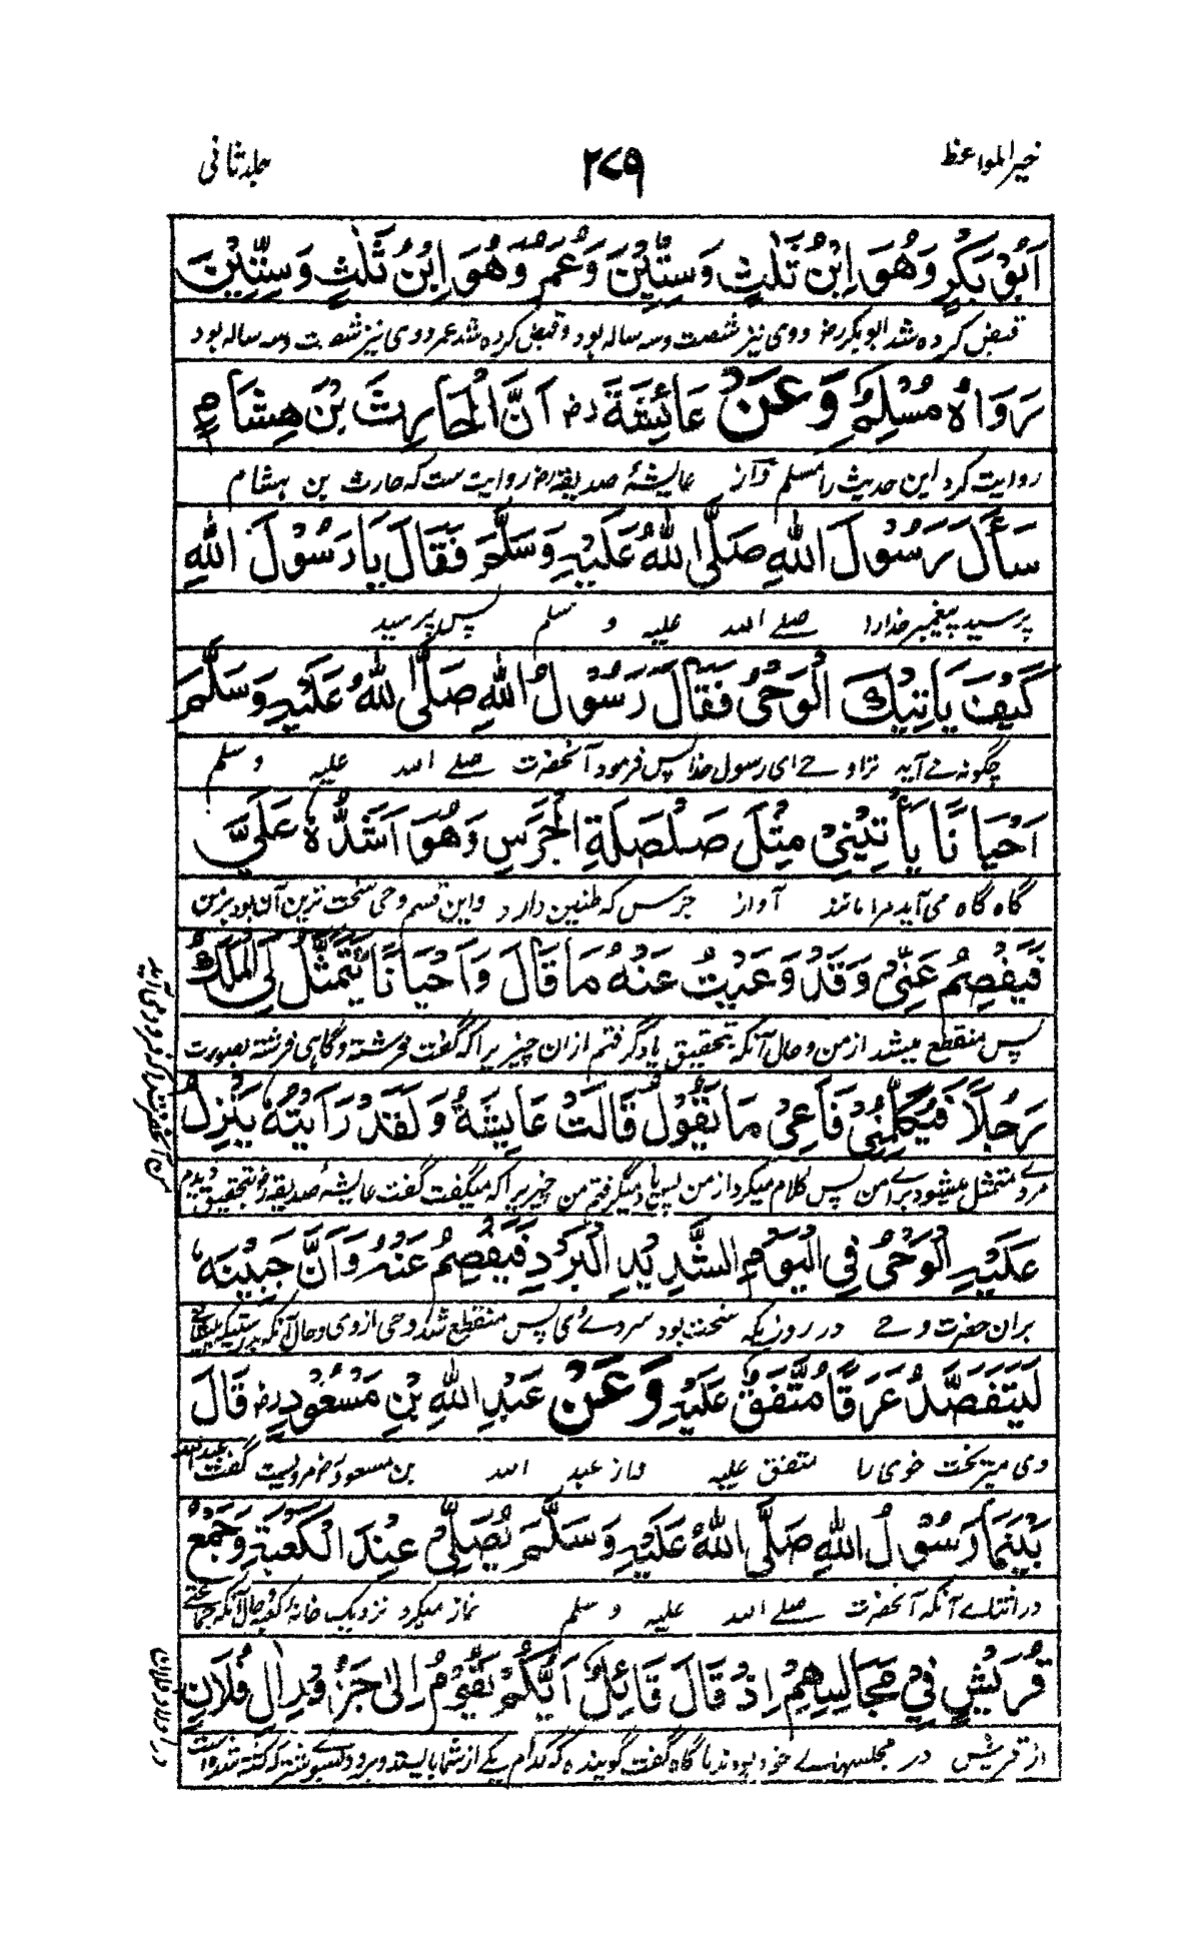 خیر المواعظ
۲۷۹
جلد ثانی
اَبُوْ بَكْرٍ وَهُوَ اِبْنُ ثَلٰثٍ وَسِتِّيْنَ وَعُمَرُ وَهُوَ اِبْنُ ثَلٰثٍ وَسِتِّيْنَ
قبض کرده شد ابو بکر رض ووی نیز شصت وسه ساله بود وقبض کرده شد عمر ووی نیز شصت وسه ساله بود
رَوَاهُ مُسْلِمٌ وَعَنْ عَائِشَةَ رض اَنَّ الْحَارِثَ بْنَ هِشَامٍ
روایت کرد این حدیث را مسلم واز عایشهٔ صدیقه رض روایت ست که حارث بن هشام
سَأَلَ رَسُوْلَ اللهِ صَلَّى اللهُ عَلَيْهِ وَسَلَّمَ فَقَالَ يَا رَسُوْلَ اللهِ
پرسید پیغمبر خدا را صلے اللہ علیہ و سلم پس پرسید
كَيْفَ يَأْتِيْكَ الْوَحْىُ فَقَالَ رَسُوْلُ اللهِ صَلَّى اللهُ عَلَيْهِ وَسَلَّمَ
چگونه مے آید ترا وحے ای رسول خدا پس فرمود آنحضرت صلے اللہ علیہ و سلم
اَحْيَانًا يَأْتِيْنِيْ مِثْلَ صَلْصَلَةِ الْجَرَسِ وَهُوَ اَشَدُّهٗ عَلَيَّ
گاه گاه می آید مرا مانند آواز جرس که طنین دارد واین قسم وحی سخت ترین آن بود بر من
فَيَفْصِمُ عَنِّىْ وَقَدْ وَعَيْتُ عَنْهُ مَا قَالَ وَاَحْيَانًا يَتَمَثَّلُ لِىَ الْمَلَكُ
پس منقطع میشد از من وحال آنکه بتحقیق یاد گرفتم ازان چیزیرا که گفت فرشته وگاهی فرشته بصورت
رَجُلًا فَيُكَلِّمُنِىْ فَاَعِىْ مَا يَقُوْلُ قَالَتْ عَايِشَةُ وَلَقَدْ رَاَيْتُهٗ يَنْزِلُ
مردے متمثل میشود برای من پس کلام میکرد از من پس یاد میگرفتم من چیزیرا که میگفت گفت عایشهٔ صدیقه رض بتحقیق دیدم
عَلَيْهِ الْوَحْىُ فِى الْيَوْمِ الشَّدِيْدِ الْبَرْدِ فَيَفْصِمُ عَنْهُ وَاَنَّ جَبِيْنَهٗ
بران حضرت وحے در روزیکه سخت بود سردے وی پس منقطع شد وحی از وی وحال آنکه بدرستیکه
لَيَتَفَصَّدُ عَرَقًا مُتَّفَقٌ عَلَيْهِ وَعَنْ عَبْدِ اللهِ بْنِ مَسْعُوْدٍ رض قَالَ
وی میریخت خوی را متفق علیه واز عبد اللہ بن مسعود رض مرویست گفت عبد اللہ
بَيْنَمَا رَسُوْلُ اللهِ صَلَّى اللهُ عَلَيْهِ وَسَلَّمَ يُصَلِّىْ عِنْدَ الْكَعْبَةِ وَجَمْعُ
در اثناے آنکه آنحضرت صلے اللہ علیہ و سلم نماز میکرد نزدیک خانهٔ کعبه وحال آنکه جماعتے
قُرَيْشٍ فِىْ مَجَالِسِهِمْ اِذْ قَالَ قَائِلٌ اَيُّكُمْ يَقُوْمُ اِلٰى جَزُوْرِ اٰلِ فُلَانٍ
از قریش در مجلسہاے خود بودند ناگاه گفت گوینده که کدام یکے از شما بایستد وبرود بسوی شتر که کشته شده است
در اولاد فلان